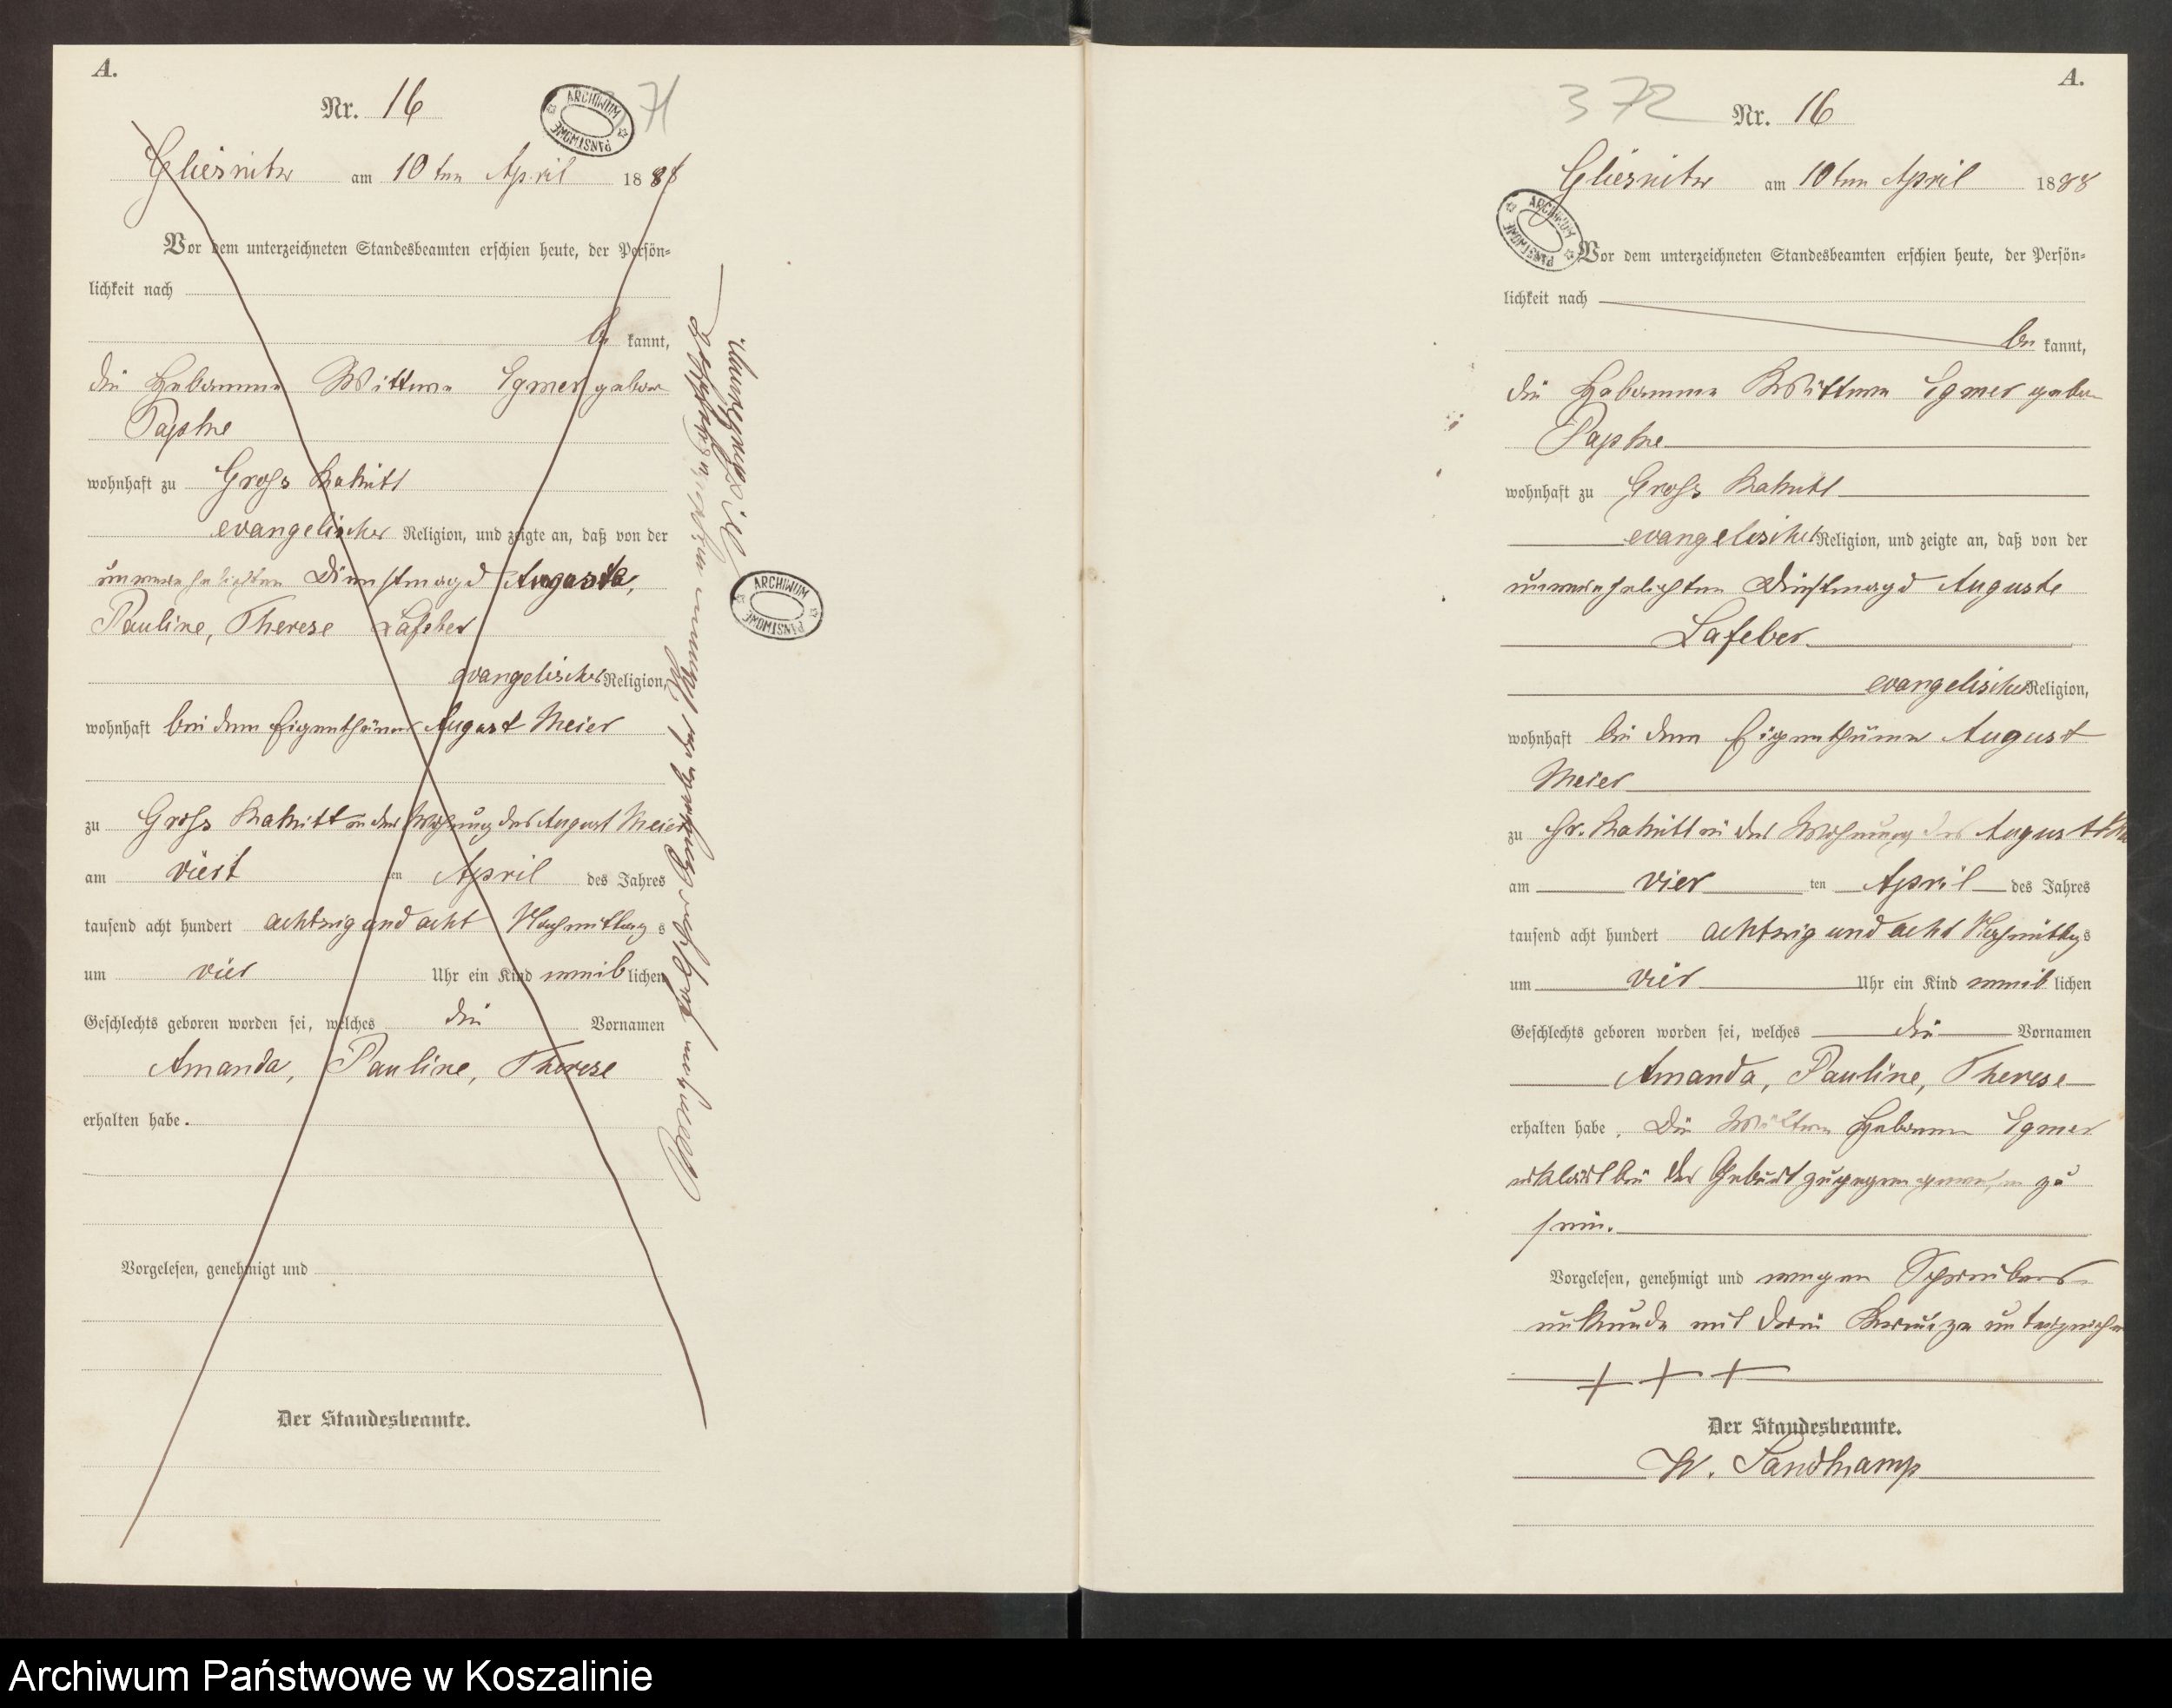 A.
Nr. 16
71
ARCHIWUM PAŃSTWOWE
Gliesnitz am 10 ten April 1888
Vor dem unterzeichneten Standesbeamten erschien heute, der Persön-
lichkeit nach
be kannt,
die Hebamme Wittwe Egmer gebor
Papke
wohnhaft zu Gross Rakitt
evangelischer Religion, und zeigte an, daß von der
unverehelichten Dienstmagd Auguste,
Pauline, Therese Lafeber
evangelischer Religion,
wohnhaft bei dem Eigenthümer August Meier
zu Gross Rakitt in der Wohnung des August Meier
am viert ten April des Jahres
tausend acht hundert achtzig und acht Nachmittag s
um vier Uhr ein Kind weib lichen
Geschlechts geboren worden sei, welches die Vornamen
Amanda, Pauline, Therese
erhalten habe.
Vorgelesen, genehmigt und
Der Standesbeamte.
ARCHIWUM PAŃSTWOWE
A.
372
Nr. 16
Gliesnitz am 10 ten April 1888
ARCHIWUM PAŃSTWOWE
Vor dem unterzeichneten Standesbeamten erschien heute, der Persön-
lichkeit nach
be kannt,
die Hebamme Wittwe Egmer gebor
Papke
wohnhaft zu Gross Rakitt
evangelischer Religion, und zeigte an, daß von der
unverehelichten Dienstmagd Auguste
Lafeber
evangelischer Religion,
wohnhaft bei dem Eigenthümer August
Meier
zu Gr. Rakitt in der Wohnung des August
am vier ten April des Jahres
tausend acht hundert achtzig und acht Nachmittags
um vier Uhr ein Kind weib lichen
Geschlechts geboren worden sei, welches die Vornamen
Amanda, Pauline, Therese
erhalten habe. Die Wittwe Hebamme Egmer
erklärt bei der Geburt zugegen gewesen zu
sein.
Vorgelesen, genehmigt und wegen Schreibens
unkunde mit drei Kreuze unterzeichnet
+ + +
Der Standesbeamte.
W. Sandkamp
Archiwum Państwowe w Koszalinie